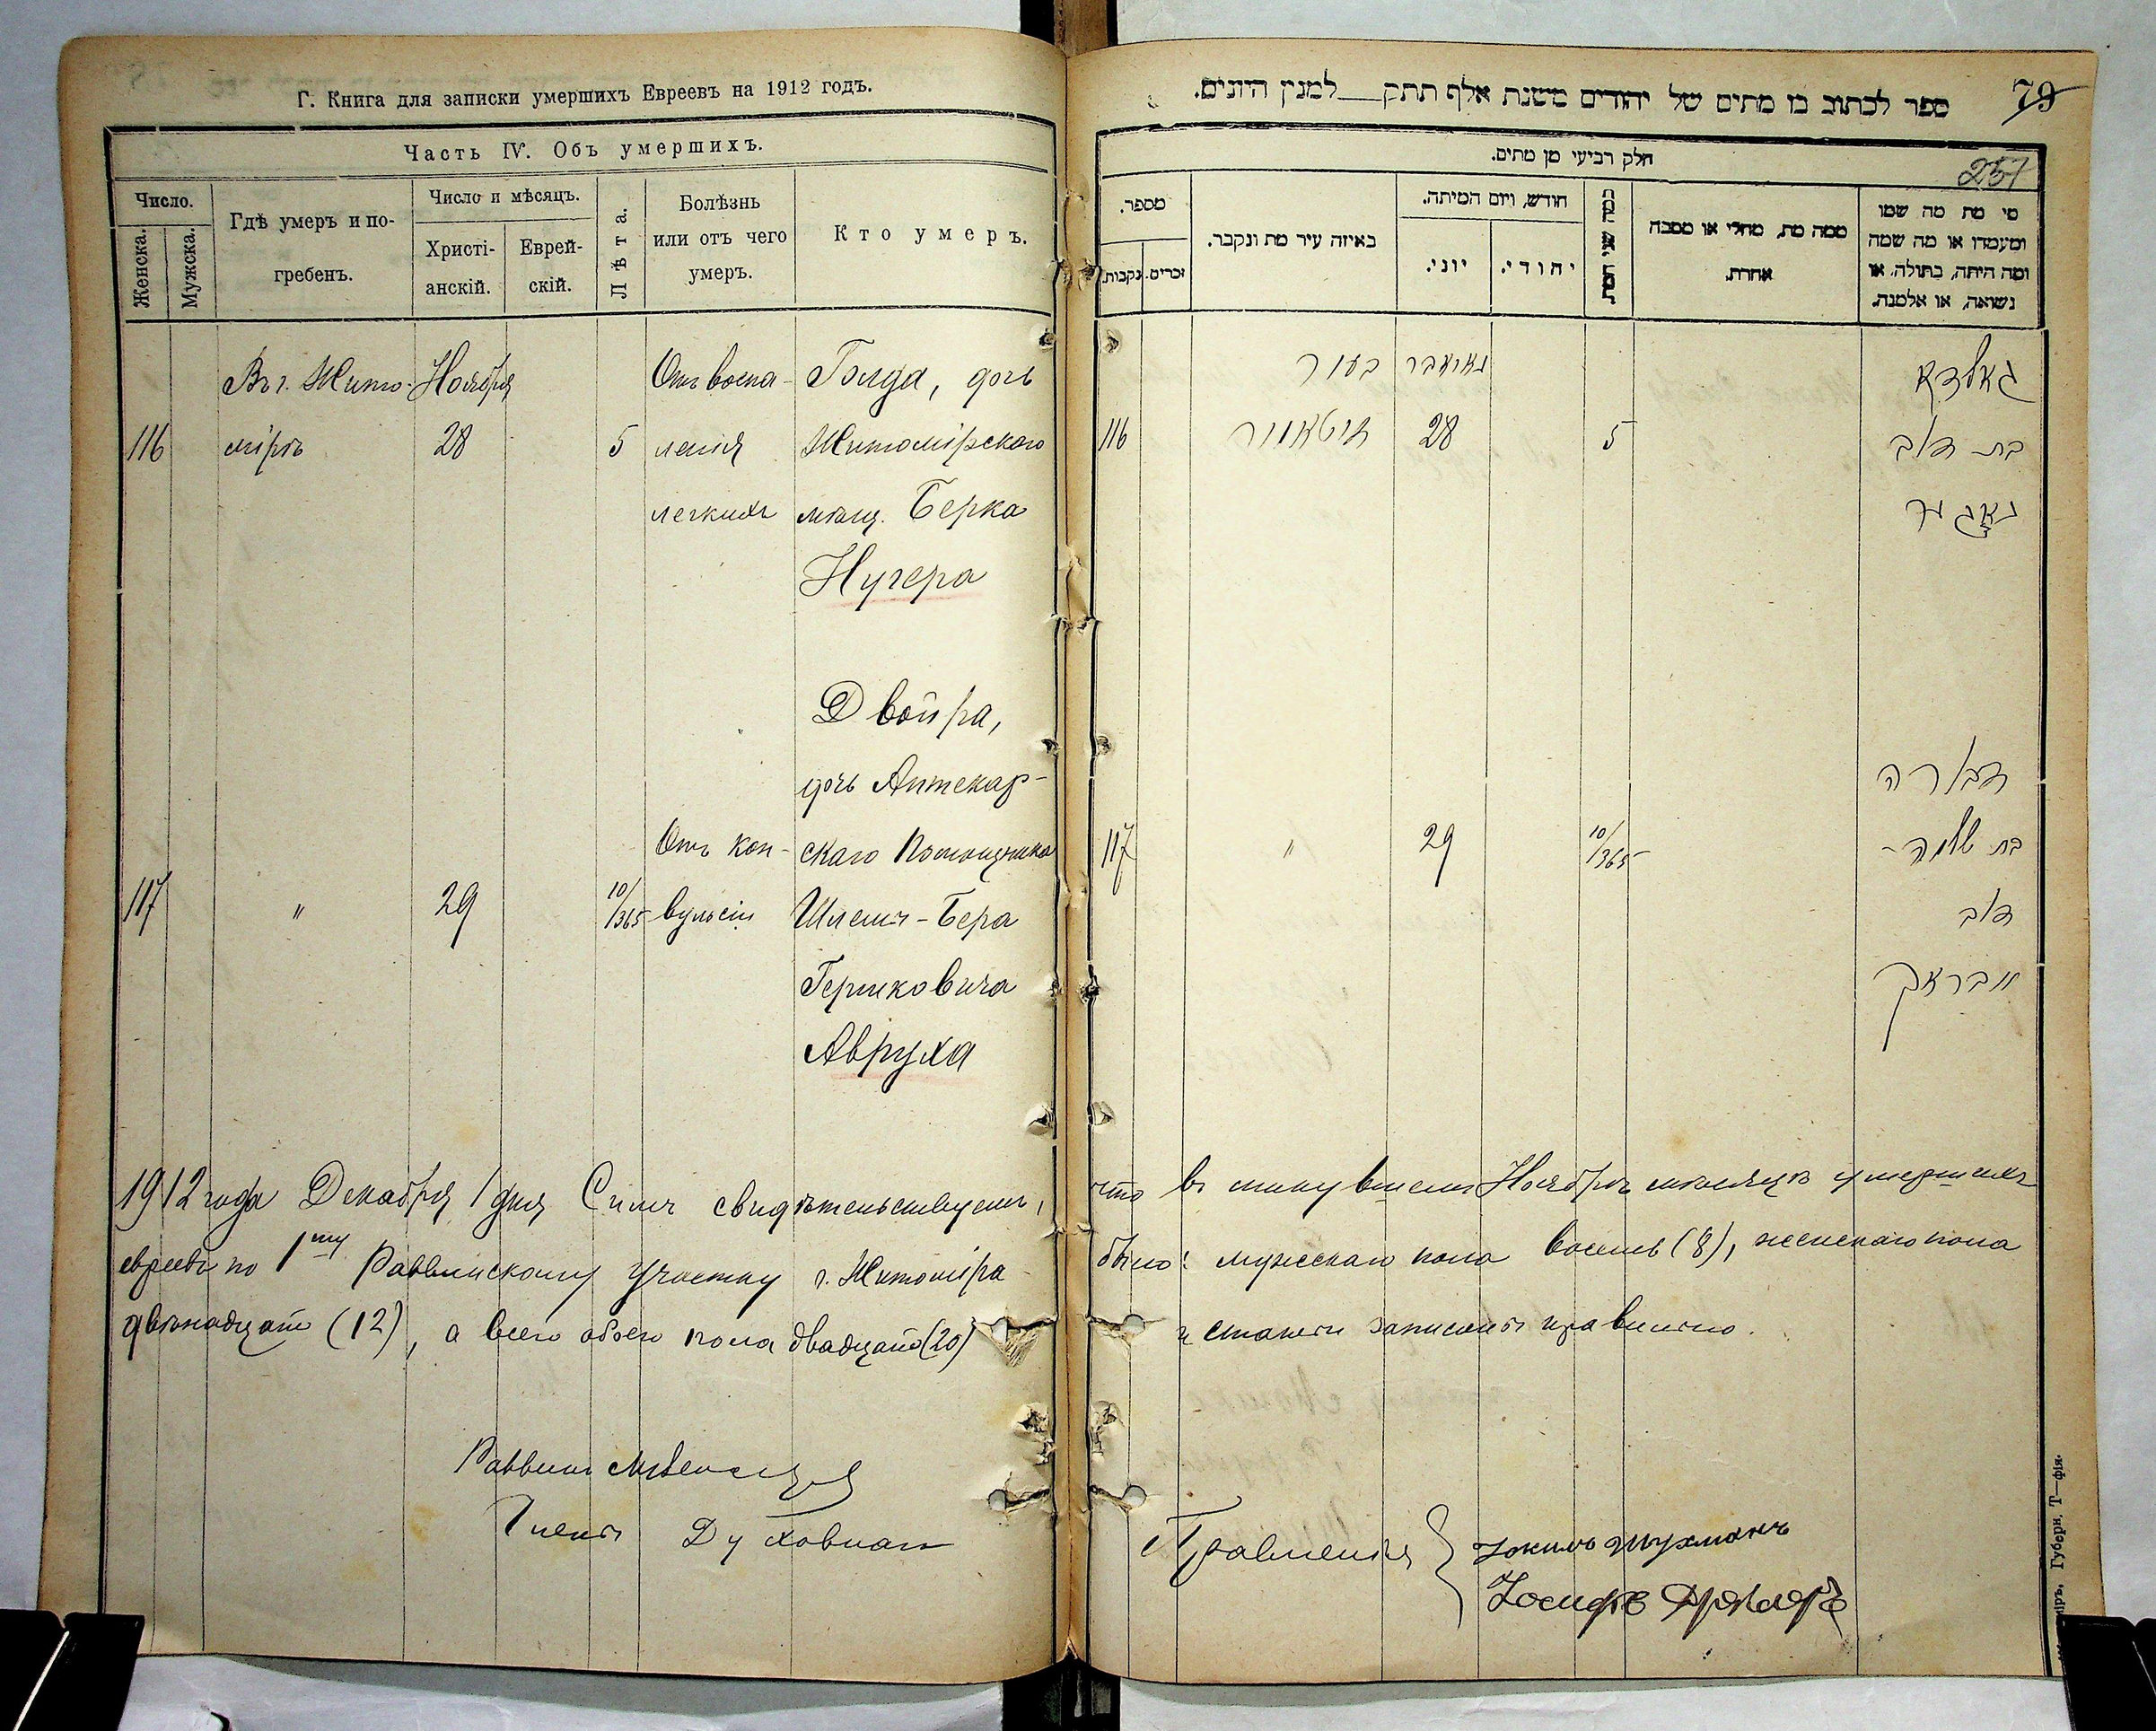 Г. Книга для записки умершихъ Евреевъ на 1912 годъ.
Часть IV. Объ умершихъ.
Число.
Женска.
Мужска.
Гдѣ умеръ и по-
гребенъ.
Число и мѣсяцъ.
Христі-
анскій.
Еврей-
скій.
Лѣта.
Болѣзнь
или отъ чего
умеръ.
Кто умеръ.
Въ г. Жито- Ноября Отъ воспа- Голда, дочь
116 мірѣ 28 5 ленія Житомірскаго
легкихъ мѣщ. Берка
Нугера
Двойра,
дочь Аптекар-
Отъ кон- скаго Помощника
117 " 29 10/365 вульсіи Шлема-Бера
Гершковича
Авруха
1912 года Декабря 1 дня Симъ свидѣтельствуемъ,
евреевъ по 1му Раввинскому участку г. Житоміра
двѣнадцать (12), а всего обоего пола двадцать (20)
Раввинъ
Члены Духовнаго
ספר לכתוב בו מתים של יהודים משנת אלף תתק למנין היונים.
79
257
חלק רביעי מן מתים.
מספר.
נקבות.
זכרים.
באיזה עיר מת ונקבר.
חודש, ויום המיתה.
יוני.
יהודי.
כמה שני המת.
ממה מת, מחלי או מסבה
אחרת.
מי מת מה שמו
ומעמדו או מה שמה
ומה היתה, בתולה, או
נשואה, או אלמנה.
גאלדא
נאיאבר
בעיר
116 זיטאמיר 28 5 בת דוב
דבורה
117 " 29 10/365 בת שלמה-
דוב
что въ минувшемъ Ноябрѣ мѣсяцѣ умершихъ
было: мужскаго пола восемь (8), женскаго пола
и статьи записаны правильно.
Правленія
Іосифъ
Губерн. Т—фія.